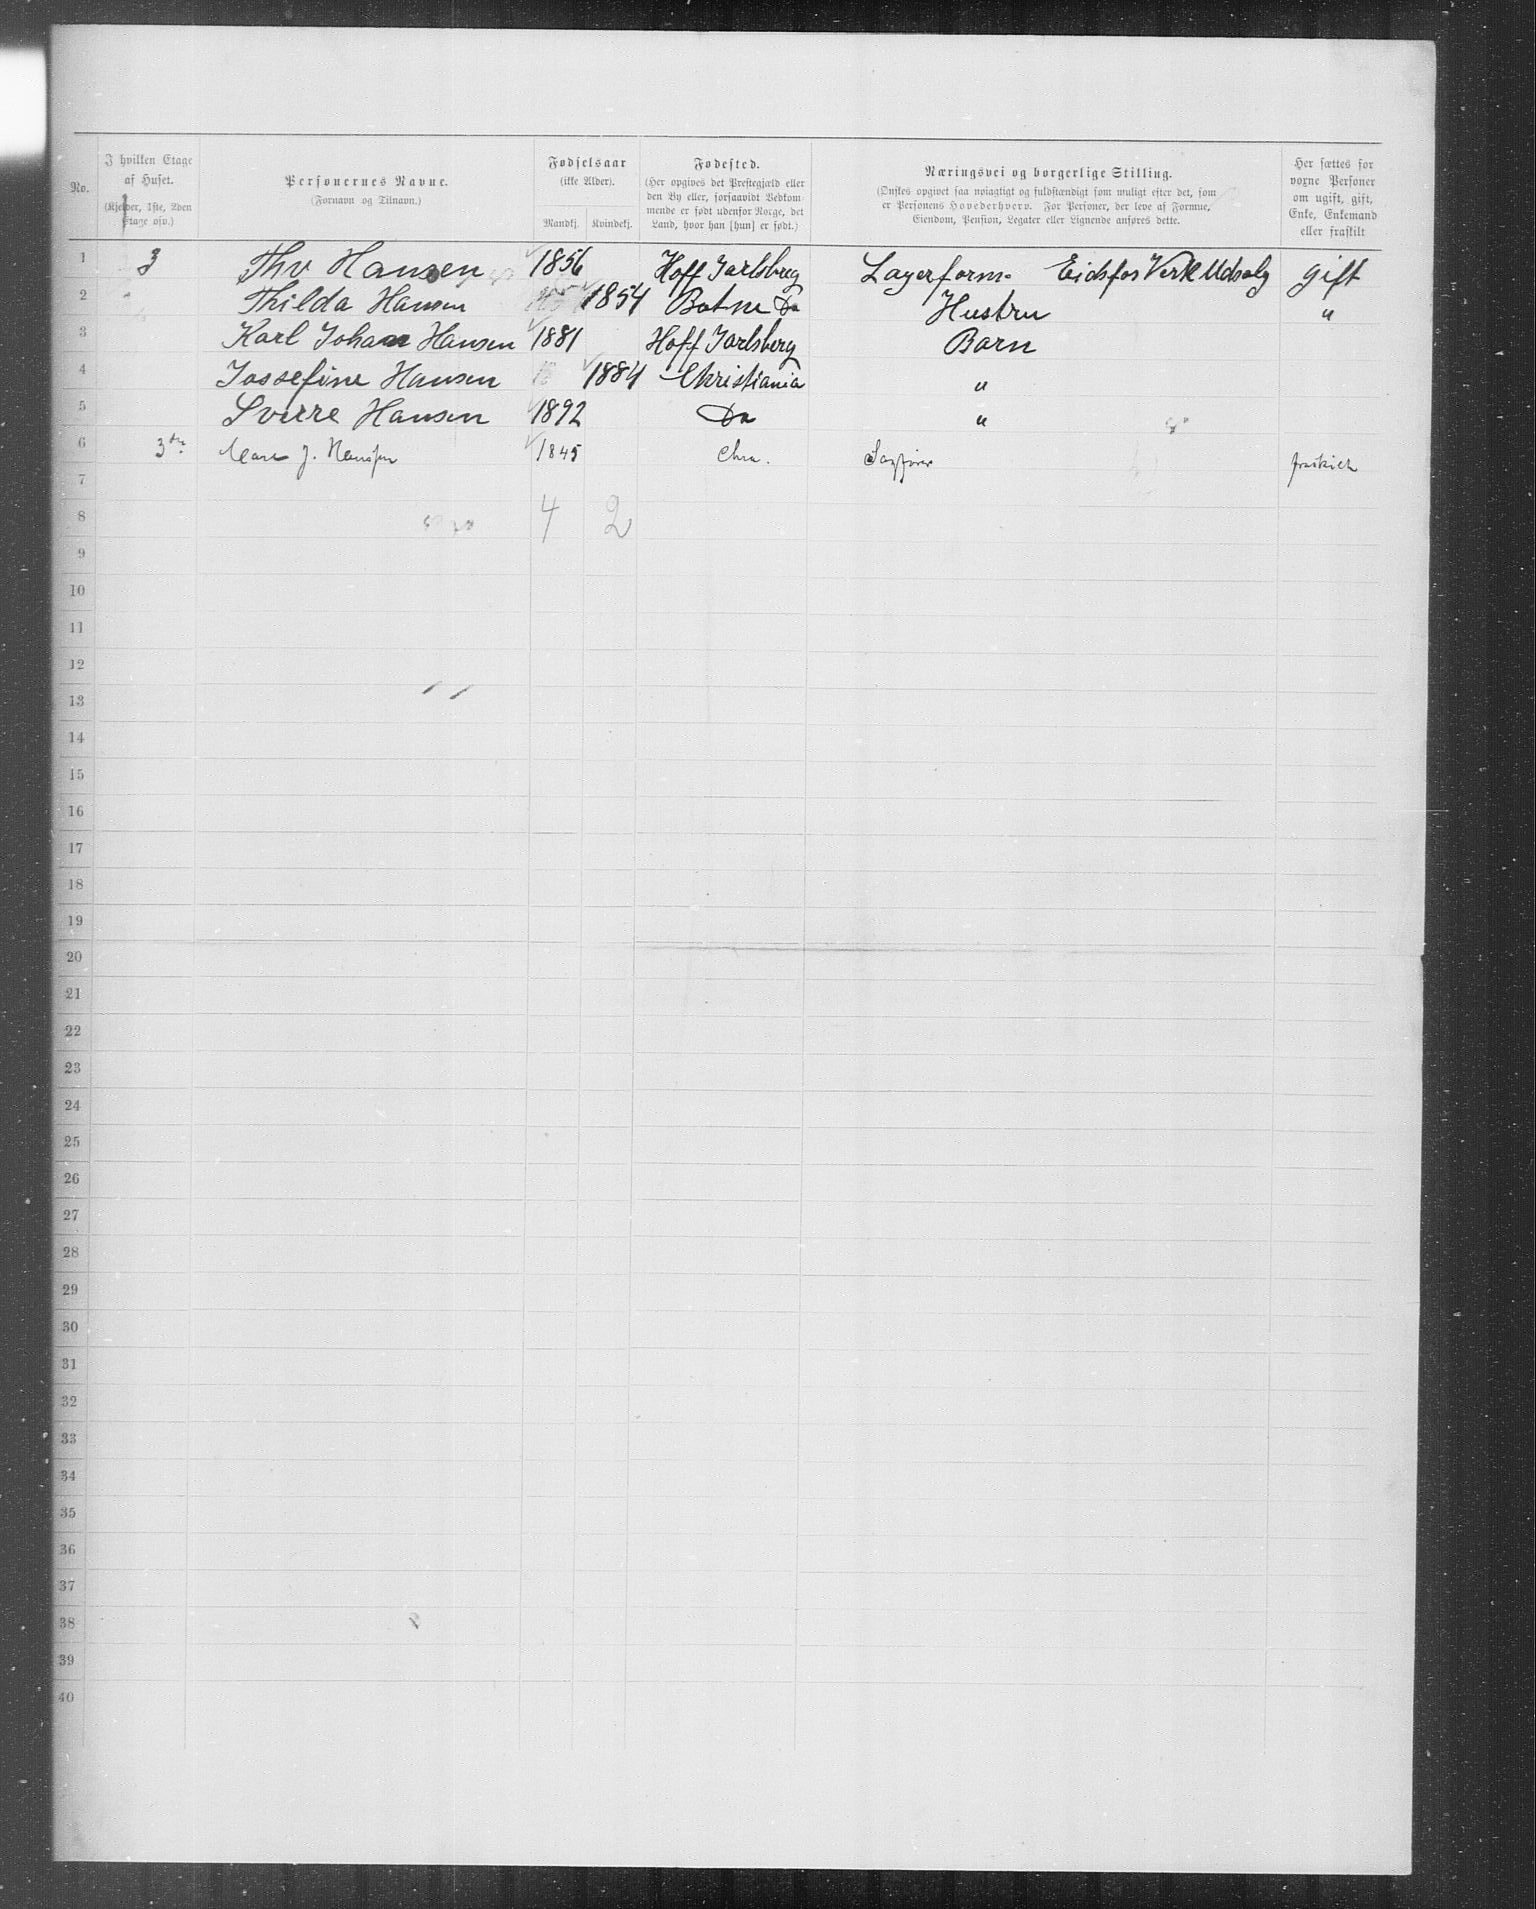 No.
I hvilken Etage
af Huset.
(Kjelder, 1ste, 2den
Etage osv.)
Personernes Navne.
(Fornavn og Tilnavn.)
Fødselsaar
(ikke Alder).
Mandkj. Kvindekj.
Fødested.
(Her opgives det Prestegjæld eller
den By eller, forsaavidt Vedkom-
mende er født udenfor Norge, det
Land, hvor han [hun] er født.)
Næringsvei og borgerlige Stilling.
(Ønskes opgivet saa nøiagtigt og fuldstændigt som muligt efter det, som
er Personens Hovederhverv. For Personer, der leve af Formue,
Eiendom, Pension, Legater eller Lignende anføres dette.
Her sættes for
voxne Personer
om ugift, gift,
Enke, Enkemand
eller fraskilt
1 3 Thv Hansen 1856 Hoff Jarlsbreg Lagerform. Eidsfos Verk Udsalg gift
2 " Thilda Hansen 1854 Botne Do Hustru "
3 Karl Johan Hansen 1881 Hoff Jarlsberg Barn
4 Jossefine Hansen 1884 Christiania "
5 Sverre Hansen 1892 Do "
6 3die J. Hansen 1845 Chra. Sagfører fraskilt
7
8 4 2
9
10
11
12
13
14
15
16
17
18
19
20
21
22
23
24
25
26
27
28
29
30
31
32
33
34
35
36
37
38
39
40